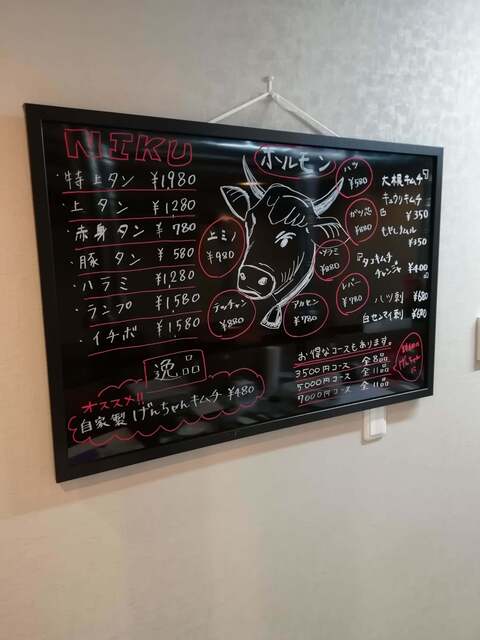 NIKU
・特上タン ¥1980
・上タン ¥1,280
・赤身タン ¥780
・豚タン ¥580
・ハラミ ¥1,280
・ランプ ¥1,580
・イチボ ¥1,580
逸品
オススメ!!
自家製げんちゃんキムチ ¥480
ホルモン
ハツ
¥580
¥880
上ミノ
¥980
¥880
レバー
¥780
テッチャン
¥880
アカセン
¥780
大根キムチ
キュウリキムチ
¥350
もやしナムル
¥350
チャンジャ ¥400
ハツ刺 ¥680
白センマイ刺 ¥680
お得なコースもあります。
3500円コース 全8品
5000円コース 全11品
7000円コース 全11品